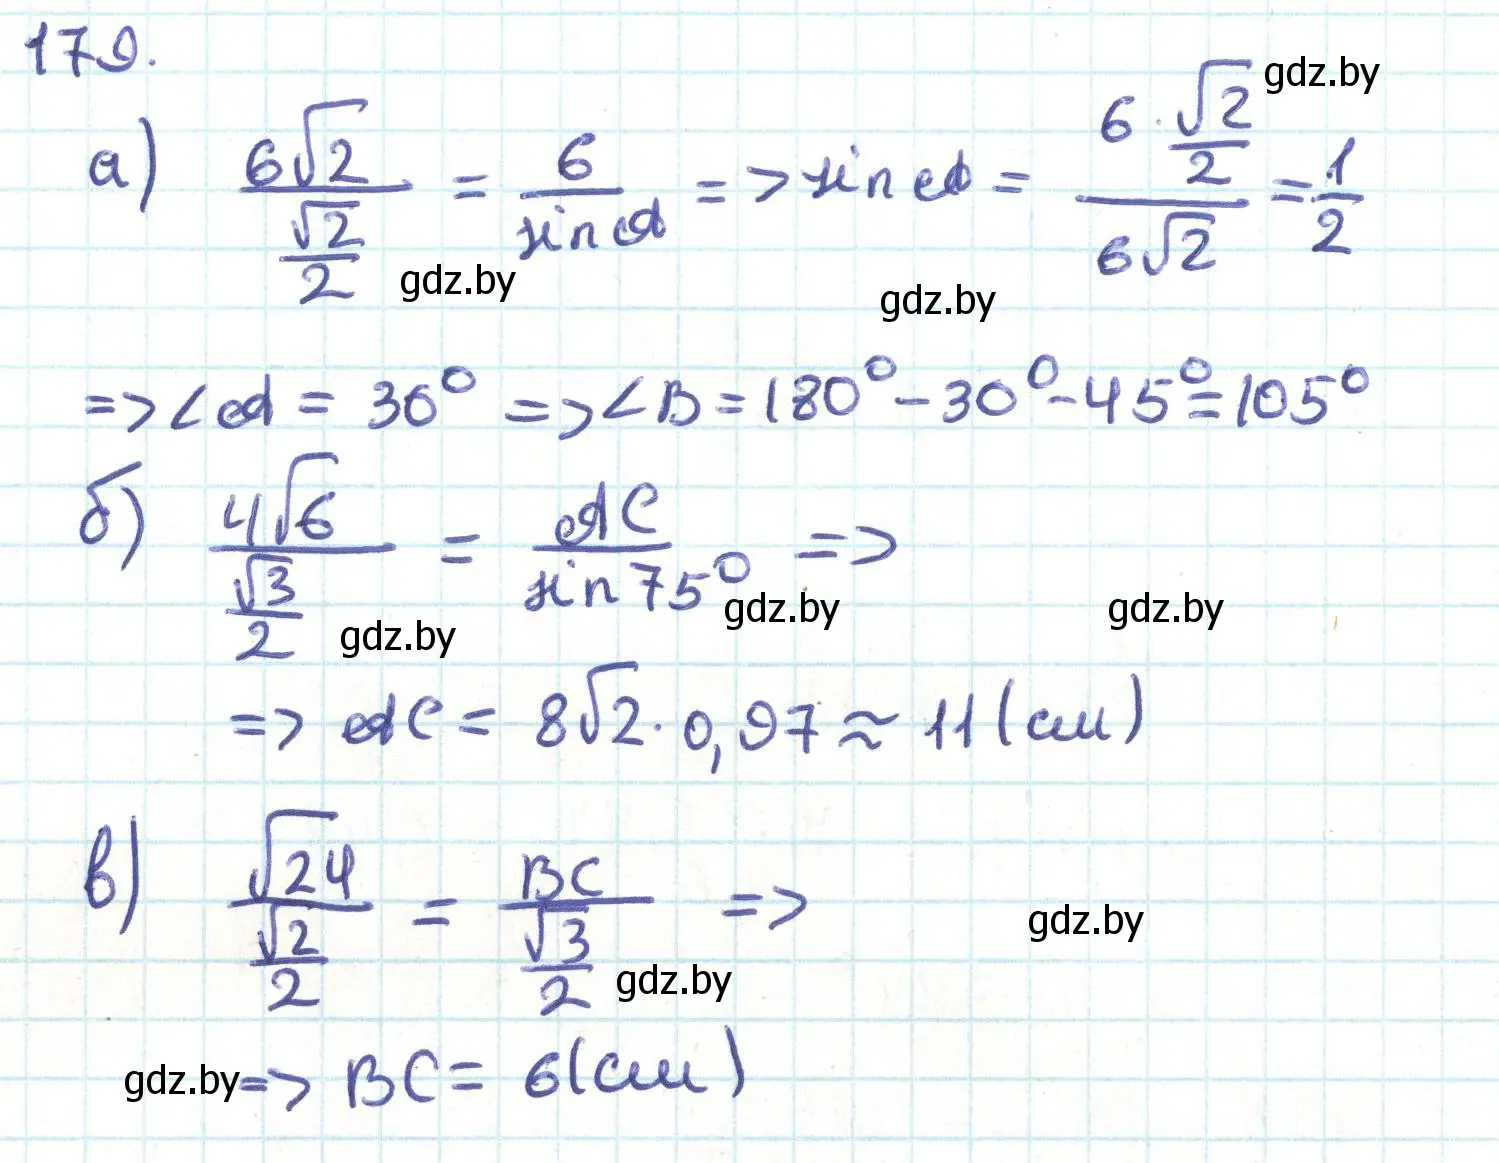 179.
gdz.by
а) 6√2 / (√2/2) = 6 / sin A => sin A = (6 · √2/2) / (6√2) = 1/2
gdz.by gdz.by
=> ∠A = 30° => ∠B = 180° - 30° - 45° = 105°
б) 4√6 / (√3/2) = AC / sin 75° =>
gdz.by gdz.by gdz.by
=> AC = 8√2 · 0,97 ≈ 11 (см)
в) √24 / (√2/2) = BC / (√3/2) =>
gdz.by
gdz.by
gdz.by => BC = 6 (см)